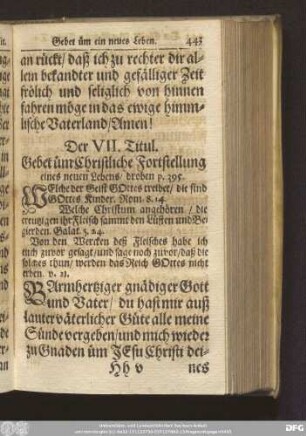 Gebet üm ein neues Leben. 443
an rückt / daß ich zu rechter dir al-
lein bekandter und gefälliger Zeit
frölich und seliglich von hinnen
fahren möge in das ewige himm-
lische Vaterland / Amen!
Der VII. Titul.
Gebet üm Christliche Fortstellung
eines neuen Lebens / droben p. 395.
WElche der Geist GOttes treibet / die sind
GOttes Kinder. Rom. 8. 14.
Welche Christum angehören / die
creutzigen ihr Fleisch sammt den Lüsten und Be-
gierden. Galat. 5. 24.
Von den Wercken deß Fleisches habe ich
euch zuvor gesagt / und sage noch zuvor / daß die
solches thun / werden das Reich GOttes nicht
erben. v. 21.
BArmhertziger gnädiger Gott
und Vater / du hast mir auß
lauter väterlicher Güte alle meine
Sünde vergeben / und mich wieder
zu Gnaden üm JEsu Christi dei-
Hh v nes